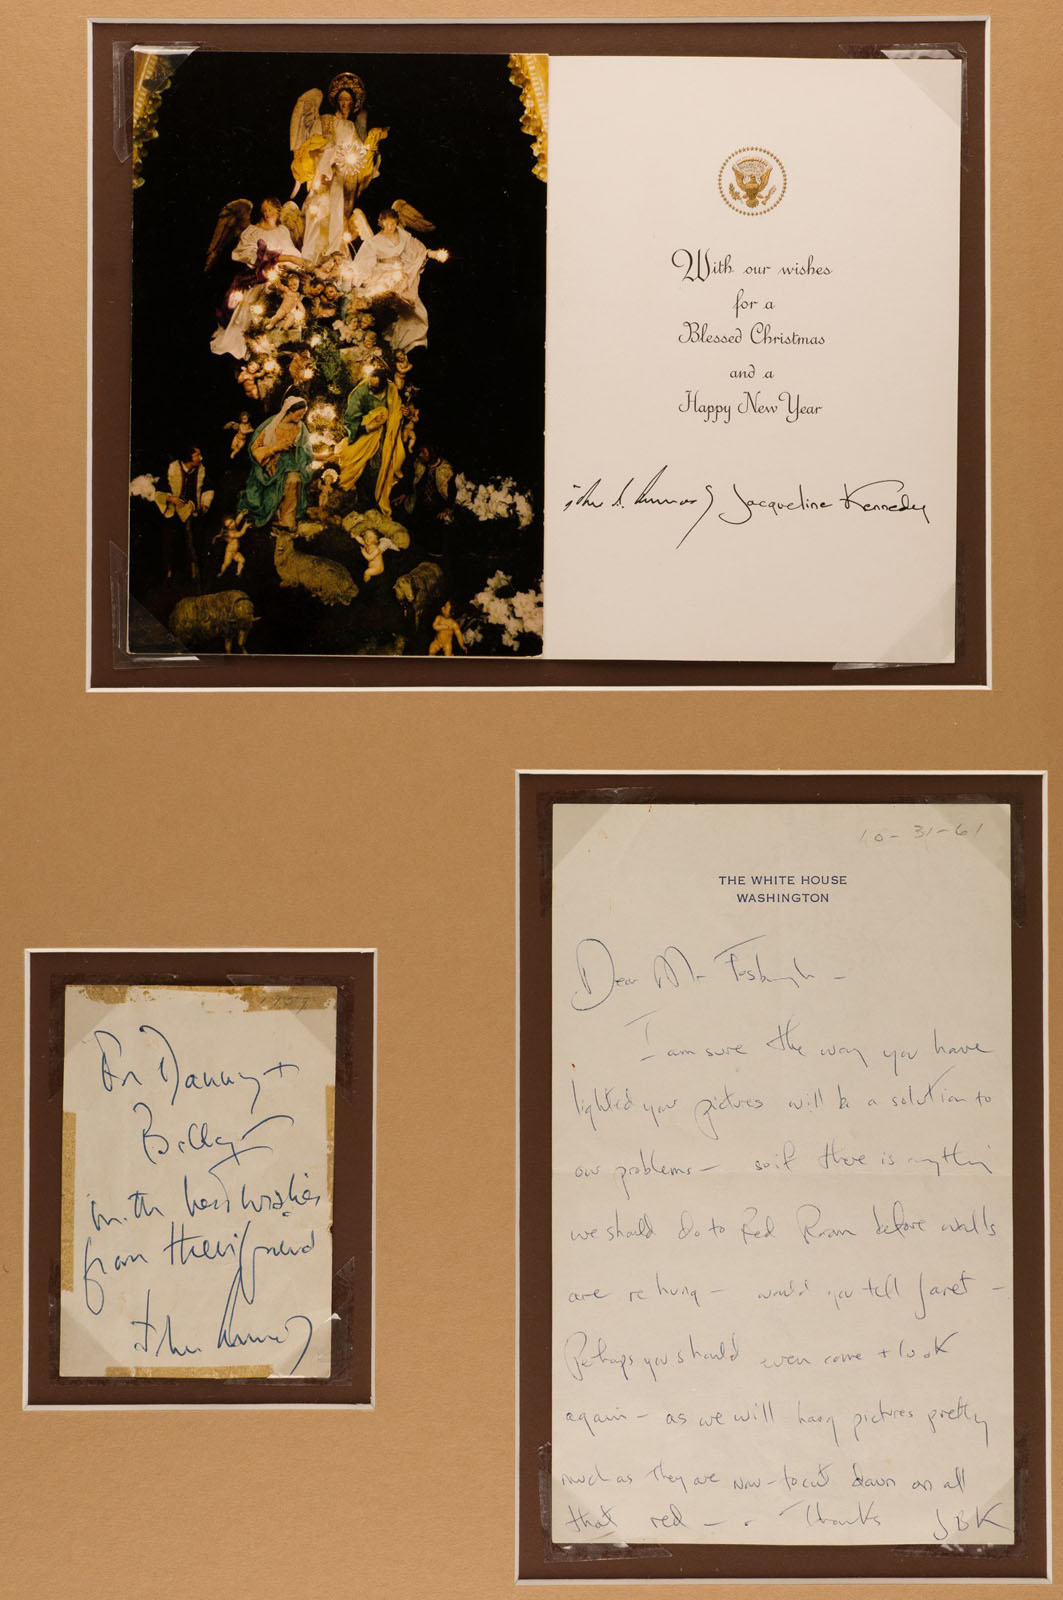 With our wishes
for a
Blessed Christmas
and a
Happy New Year
Jacqueline Kennedy
For Danny +
Billy
with best wishes
from their friend
10-31-61
THE WHITE HOUSE
WASHINGTON
Dear Mr Fosburgh –
I am sure the way you have
lighted your pictures will be a solution to
our problems – so if there is anything
we should do to Red Room before walls
are re hung – would you tell Janet –
Perhaps you should even come + look
again – as we will hang pictures pretty
much as they are now – to cut down on all
that red – . Thanks JBK